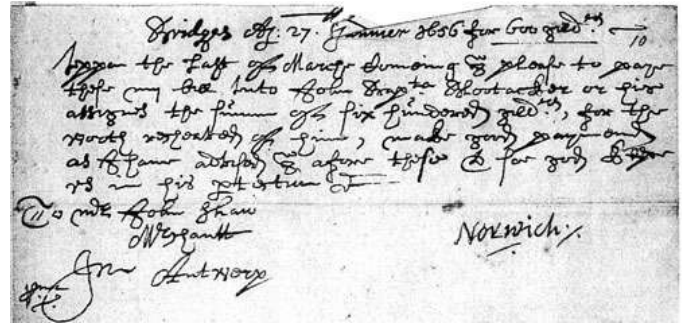 Bridges Adj: 27. Jannuier 1656 for 600 gild:ers
uppon the last of Marche Comeing please to paye
these my bill unto John Shootacker or his
assignes the summ of six hundered gild:ers, for the
worth rescented of him, make good payment
as I have advised afore these & soe god
in his
To mr John Shaw
Merchantt
In Antwerp
Norwich